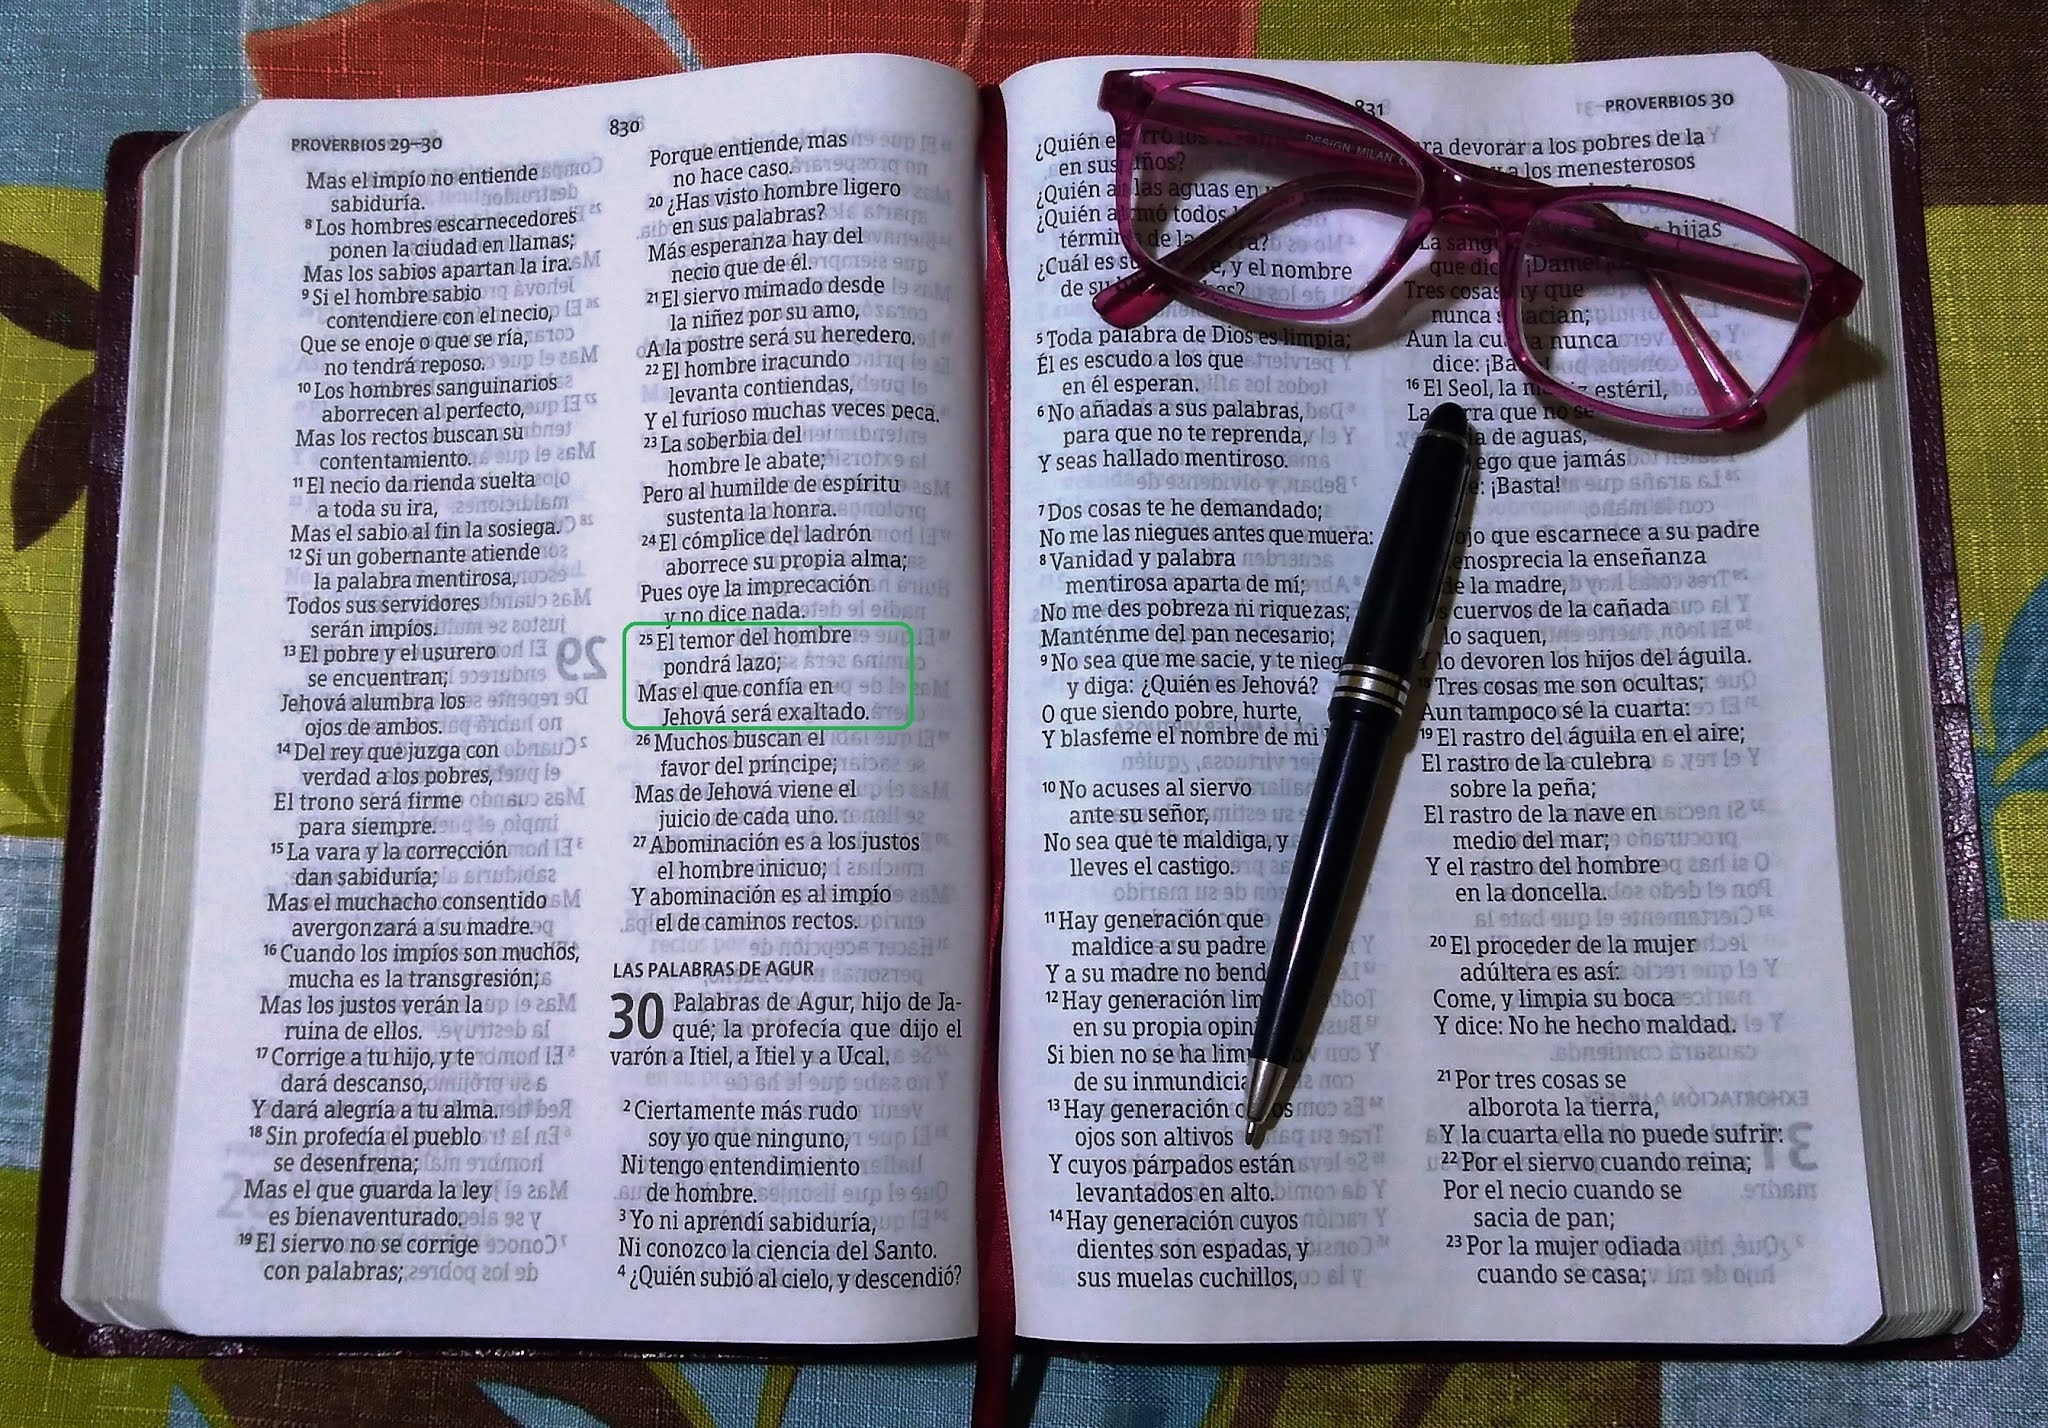 PROVERBIOS 29–30
830
Mas el impío no entiende
sabiduría.
8 Los hombres escarnecedores
ponen la ciudad en llamas;
Mas los sabios apartan la ira.
9 Si el hombre sabio
contendiere con el necio,
Que se enoje o que se ría,
no tendrá reposo.
10 Los hombres sanguinarios
aborrecen al perfecto,
Mas los rectos buscan su
contentamiento.
11 El necio da rienda suelta
a toda su ira,
Mas el sabio al fin la sosiega.
12 Si un gobernante atiende
la palabra mentirosa,
Todos sus servidores
serán impíos.
13 El pobre y el usurero
se encuentran;
Jehová alumbra los
ojos de ambos.
14 Del rey que juzga con
verdad a los pobres,
El trono será firme
para siempre.
15 La vara y la corrección
dan sabiduría;
Mas el muchacho consentido
avergonzará a su madre.
16 Cuando los impíos son muchos,
mucha es la transgresión;
Mas los justos verán la
ruina de ellos.
17 Corrige a tu hijo, y te
dará descanso,
Y dará alegría a tu alma.
18 Sin profecía el pueblo
se desenfrena;
Mas el que guarda la ley
es bienaventurado.
19 El siervo no se corrige
con palabras;
Porque entiende, mas
no hace caso.
20 ¿Has visto hombre ligero
en sus palabras?
Más esperanza hay del
necio que de él.
21 El siervo mimado desde
la niñez por su amo,
A la postre será su heredero.
22 El hombre iracundo
levanta contiendas,
Y el furioso muchas veces peca.
23 La soberbia del
hombre le abate;
Pero al humilde de espíritu
sustenta la honra.
24 El cómplice del ladrón
aborrece su propia alma;
Pues oye la imprecación
y no dice nada.
25 El temor del hombre
pondrá lazo;
Mas el que confía en
Jehová será exaltado.
26 Muchos buscan el
favor del príncipe;
Mas de Jehová viene el
juicio de cada uno.
27 Abominación es a los justos
el hombre inicuo;
Y abominación es al impío
el de caminos rectos.
LAS PALABRAS DE AGUR
30 Palabras de Agur, hijo de Ja-
qué; la profecía que dijo el
varón a Itiel, a Itiel y a Ucal.
2 Ciertamente más rudo
soy yo que ninguno,
Ni tengo entendimiento
de hombre.
3 Yo ni aprendí sabiduría,
Ni conozco la ciencia del Santo.
4 ¿Quién subió al cielo, y descendió?
831
PROVERBIOS 30
¿Quién los
en sus
¿Quién las aguas en
¿Quién todos
de la
¿Cuál es su y el nombre
de su
5 Toda palabra de Dios es limpia;
Él es escudo a los que
en él esperan.
6 No añadas a sus palabras,
para que no te reprenda,
Y seas hallado mentiroso.
7 Dos cosas te he demandado;
No me las niegues antes que muera:
8 Vanidad y palabra
mentirosa aparta de mí;
No me des pobreza ni riquezas;
Manténme del pan necesario;
9 No sea que me sacie, y te
y diga: ¿Quién es Jehová?
O que siendo pobre, hurte,
Y blasfeme el nombre de mi
10 No acuses al siervo
ante su señor,
No sea que te maldiga, y
lleves el castigo.
11 Hay generación que
maldice a su padre
Y a su madre no
12 Hay generación
en su propia
Si bien no se ha
de su inmundicia
13 Hay generación
ojos son altivos
Y cuyos párpados están
levantados en alto.
14 Hay generación cuyos
dientes son espadas, y
sus muelas cuchillos,
devorar a los pobres de la
a los menesterosos
hijas
La
que
Tres cosas hay que
nunca
Aun la nunca
dice:
16 El Seol, la estéril,
La que no se
de aguas,
que jamás
¡Basta!
que escarnece a su padre
la enseñanza
de la madre,
cuervos de la cañada
lo saquen,
lo devoren los hijos del águila.
Tres cosas me son ocultas;
Aun tampoco sé la cuarta:
19 El rastro del águila en el aire;
El rastro de la culebra
sobre la peña;
El rastro de la nave en
medio del mar;
Y el rastro del hombre
en la doncella.
20 El proceder de la mujer
adúltera es así:
Come, y limpia su boca
Y dice: No he hecho maldad.
21 Por tres cosas se
alborota la tierra,
Y la cuarta ella no puede sufrir:
22 Por el siervo cuando reina;
Por el necio cuando se
sacia de pan;
23 Por la mujer odiada
cuando se casa;
DESIGN MILAN